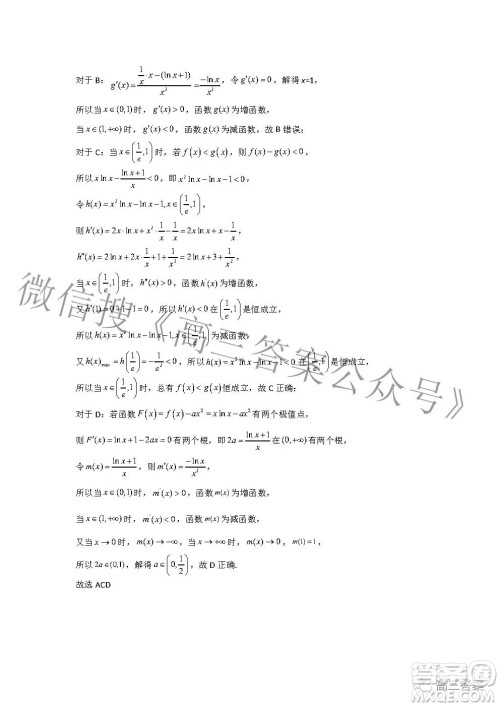 对于 B：g′(x)=(1/x·x−(ln x+1))/x²=−ln x/x²，令 g′(x)=0，解得 x=1，
所以当 x∈(0,1)时，g′(x)>0，函数 g(x)为增函数，
当 x∈(1,+∞)时，g′(x)<0，函数 g(x)为减函数，故 B 错误；
对于 C：当 x∈(1/e,1)时，若 f(x)<g(x)，则 f(x)−g(x)<0，
所以 x ln x−(ln x+1)/x<0，即 x² ln x−ln x−1<0，
令 h(x)=x² ln x−ln x−1，x∈(1/e,1)，
则 h′(x)=2x·ln x+x²·1/x−1/x=2x ln x+x−1/x，
h″(x)=2 ln x+2x·1/x+1+1/x²=2 ln x+3+1/x²，
当 x∈(1/e,1)时，h″(x)>0，函数 h′(x)为增函数，
又 h′(1)=0+1−1=0，所以 h′(x)<0 在(1/e,1)是恒成立，
所以 h(x)=x² ln x−ln x−1 为减函数，
又 h(x)max=h(1/e)=−1/e²<0，所以 h(x)=x² ln x−ln x−1<0 在(1/e,1)是恒成立，
所以当 x∈(1/e,1)时，总有 f(x)<g(x)恒成立，故 C 正确；
对于 D：若函数 F(x)=f(x)−ax²=x ln x−ax²有两个极值点，
则 F′(x)=ln x+1−2ax=0 有两个根，即 2a=(ln x+1)/x 在(0,+∞)有两个根，
令 m(x)=(ln x+1)/x，则 m′(x)=−ln x/x²，
所以当 x∈(0,1)时，m′(x)>0，函数 m(x)为增函数，
当 x∈(1,+∞)时，m′(x)<0，函数 m(x)为减函数，
又当 x→0 时，m(x)→−∞，当 x→+∞时，m(x)→0，m(1)=1，
所以 2a∈(0,1)，解得 a∈(0,1/2)，故 D 正确.
故选 ACD
微信搜《高三答案公众号》
高三答案